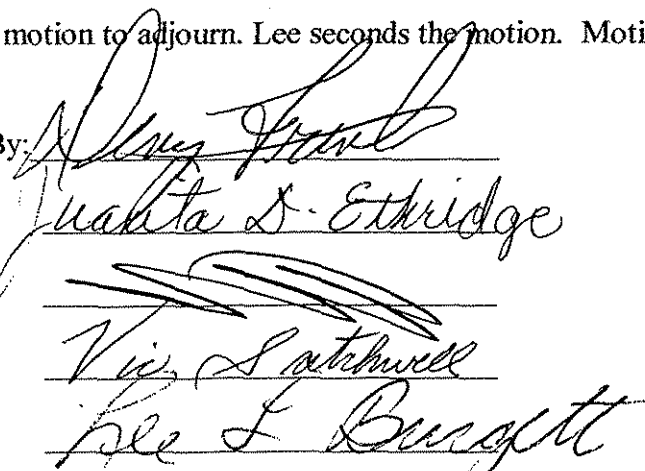 motion to adjourn. Lee seconds the motion. Moti
By:
Juanita D. Ethridge
Vic Satchwell
Lee L Burgett